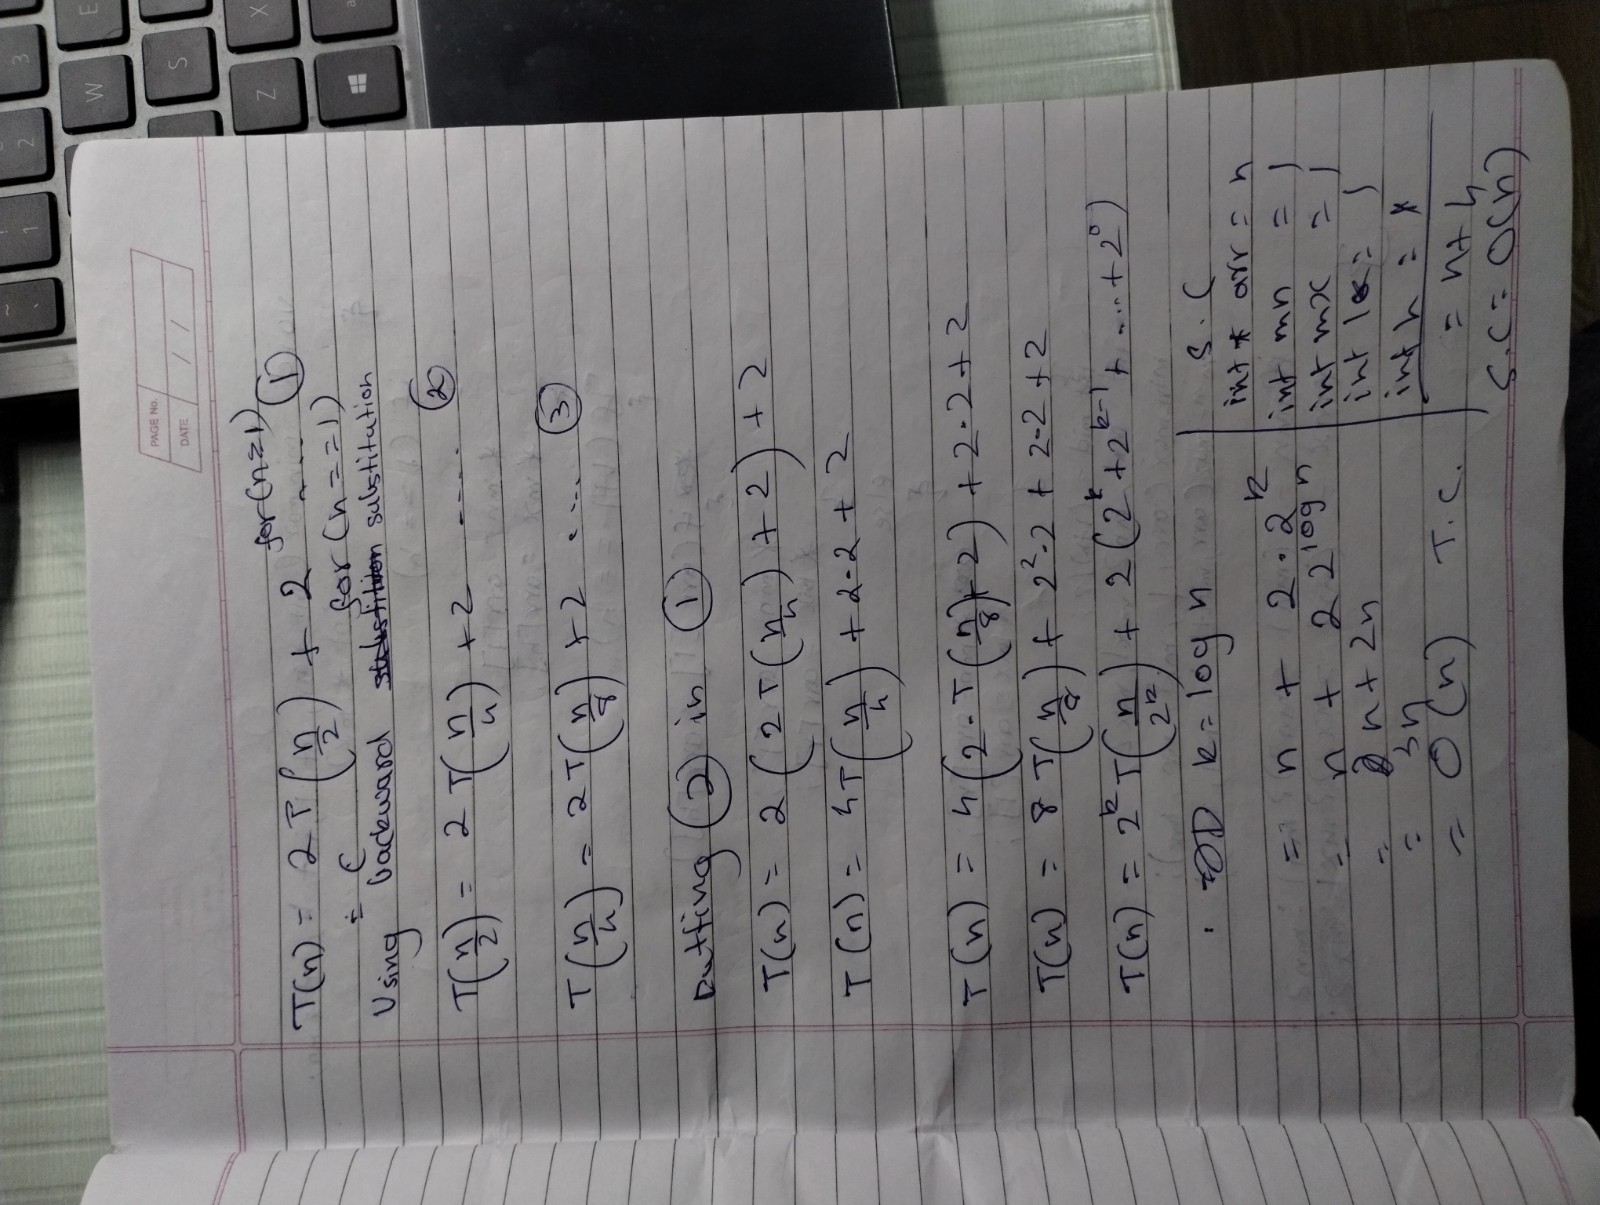 PAGE NO.
DATE / /
T(n) = 2T(n/2) + 2 .... for(n≥1) ①
= C for(n==1)
Using backward substitution
T(n/2) = 2T(n/4) + 2 .... ②
T(n/4) = 2T(n/8) + 2 .... ③
Putting ② in ①
T(n) = 2(2T(n/4) + 2) + 2
T(n) = 4T(n/4) + 2·2 + 2
T(n) = 4(2·T(n/8) + 2) + 2·2 + 2
T(n) = 8T(n/8) + 2²·2 + 2·2 + 2
T(n) = 2ᵏT(n/2ᵏ) + 2(2ᵏ + 2ᵏ⁻¹ + .... + 2⁰)
k = log n
= n + 2·2ᵏ
= n + 2 2^log n
= n + 2n
= 3n
= O(n) T.C.
S.C
int* arr = n
int mn = 1
int mx = 1
int = 1
int h =
= n+4
S.C = O(n)
1
2
3
W
E
S
Z
X